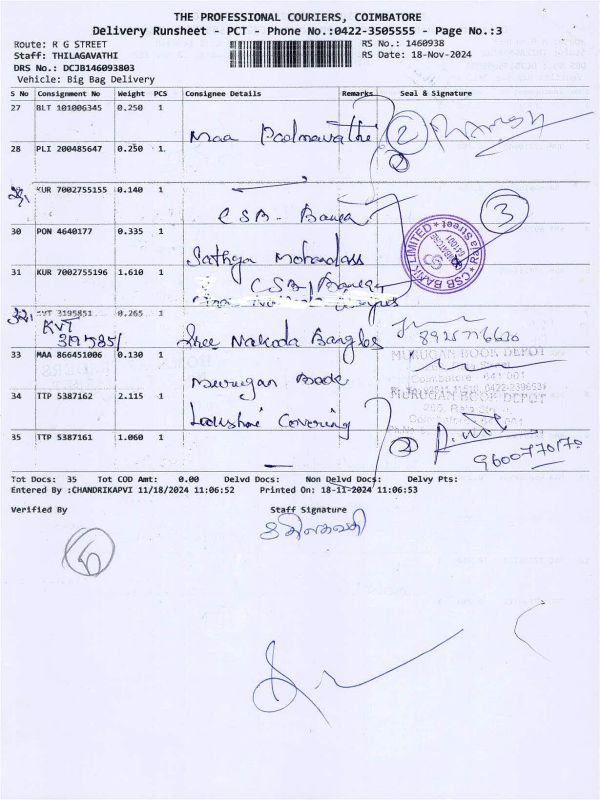 THE PROFESSIONAL COURIERS, COIMBATORE
Delivery Runsheet - PCT - Phone No.:0422-3505555 - Page No.:3
Route: R G STREET
RS No.: 1460938
Staff: THILAGAVATHI
RS Date: 18-Nov-2024
DRS No.: DCJB146093803
Vehicle: Big Bag Delivery
S No Consignment No Weight PCS Consignee Details Remarks Seal & Signature
27 BLT 101006345 0.250 1
Maa Padmavathi 2
28 PLI 200485647 0.250 1
29, KUR 7002755155 0.140 1
CSB - Bank 3
30 PON 4640177 0.335 1
Sathya Mohandass
CSB BANK LIMITED
31 KUR 7002755196 1.610 1
CSB - Bank
32, KVT 3195851 0.265 1
KVT
3195851
Shree Nakoda Bangles
8925776620
33 MAA 866451006 0.130 1
Murugan Book
MURUGAN BOOK DEPOT
34 TTP 5387162 2.115 1
Lakshmi Covering
MURUGAN BOOK DEPOT
35 TTP 5387161 1.060 1
2
9600770170
Tot Docs: 35 Tot COD Amt: 0.00 Delvd Docs: Non Delvd Docs: Delvy Pts:
Entered By :CHANDRIKAPVI 11/18/2024 11:06:52 Printed On: 18-11-2024 11:06:53
Verified By Staff Signature
6